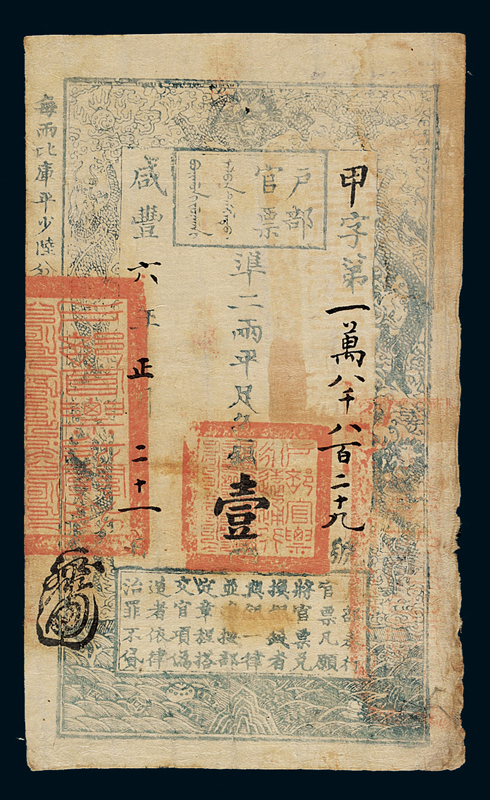 戶部
官票
甲字第一萬八千八百二十九號
準二兩平足色銀壹
咸豐六年正二十一
每兩比庫平少陸分
部奏行
官票凡願
將官票兌
換銀錢者
與銀一律
並准按部
定章程搭
交官項偽
造者依律
治罪不貸